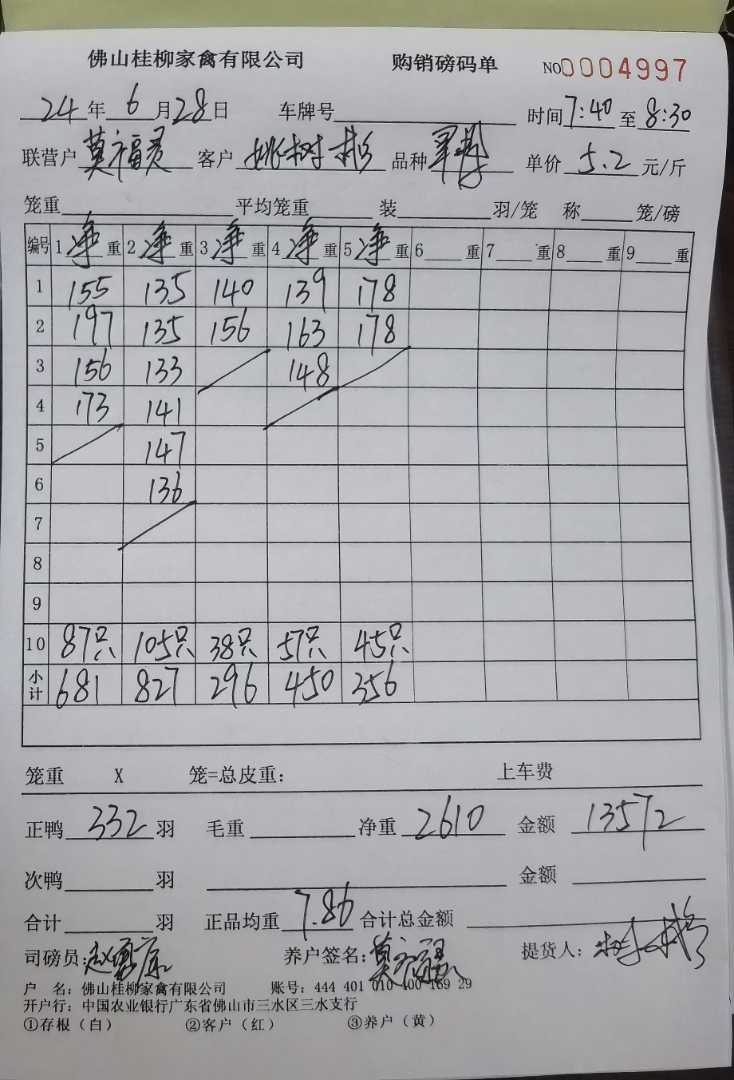 佛山桂柳家禽有限公司 购销磅码单 NO0004997
24年6月28日 车牌号 时间7:40至8:30
联营户莫福灵 客户 树 品种 单价5.2元/斤
笼重 平均笼重 装 羽/笼 称 笼/磅
编号 1净重 2净重 3净重 4净重 5净重 6 重 7 重 8 重 9 重
1 155 135 140 139 178
2 197 135 156 163 178
3 156 133 148
4 173 141
5 147
6 136
7
8
9
10 87只 105只 38只 57只 45只
小计 681 827 296 450 356
笼重 X 笼=总皮重: 上车费
正鸭332羽 毛重 净重2610 金额13572
次鸭 羽 金额
合计 羽 正品均重7.86 合计总金额
司磅员: 养户签名:莫福灵 提货人:
户 名: 佛山桂柳家禽有限公司 账号: 444 401 010 400 169 29
开户行: 中国农业银行广东省佛山市三水区三水支行
①存根(白) ②客户(红) ③养户(黄)